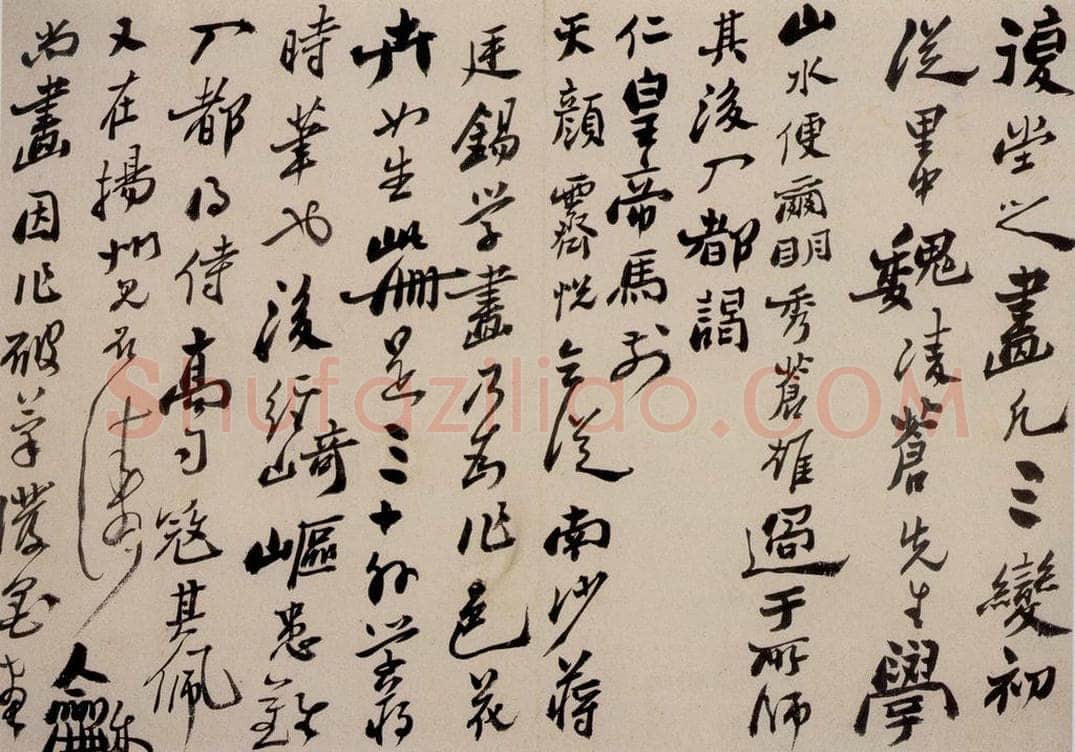 復堂之畫凡三變初
從里中魏凌蒼先生學
山水便爾明秀蒼雄過于所師
其後入都謁
仁皇帝馬前
天顏霽悅令從南沙蔣
廷錫學畫乃為作色花
卉如生此冊是三十外學蔣
時筆也後經崎嶇患難
入都得侍高司寇其佩
又在揚州見石濤龢
尚畫因作破筆潑墨畫
Shufaziliao.COM